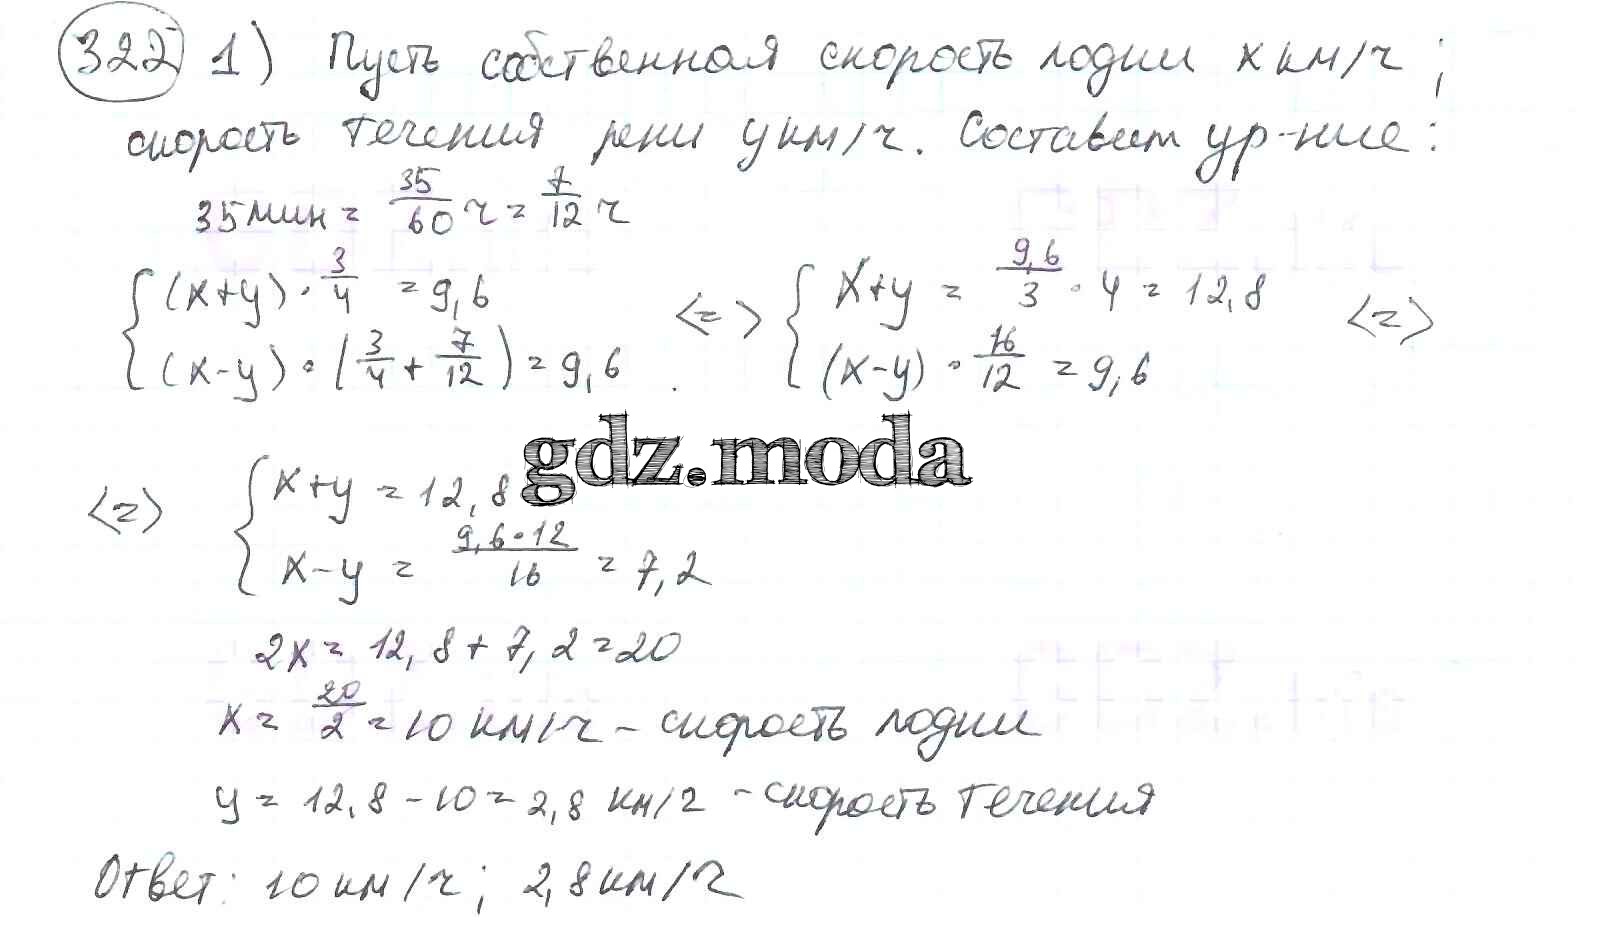 322 1) Пусть собственная скорость лодки x км/ч;
скорость течения реки y км/ч. Составим ур-ние:
35 мин = 35/60 ч = 7/12 ч
{ (x+y) · 3/4 = 9,6 <=> { x+y = 9,6/3 · 4 = 12,8 <=>
(x-y) · (3/4 + 7/12) = 9,6 (x-y) · 16/12 = 9,6
gdz.moda
<=> { x+y = 12,8
x-y = 9,6·12/16 = 7,2
2x = 12,8 + 7,2 = 20
x = 20/2 = 10 км/ч - скорость лодки
y = 12,8 - 10 = 2,8 км/ч - скорость течения
Ответ: 10 км/ч; 2,8 км/ч